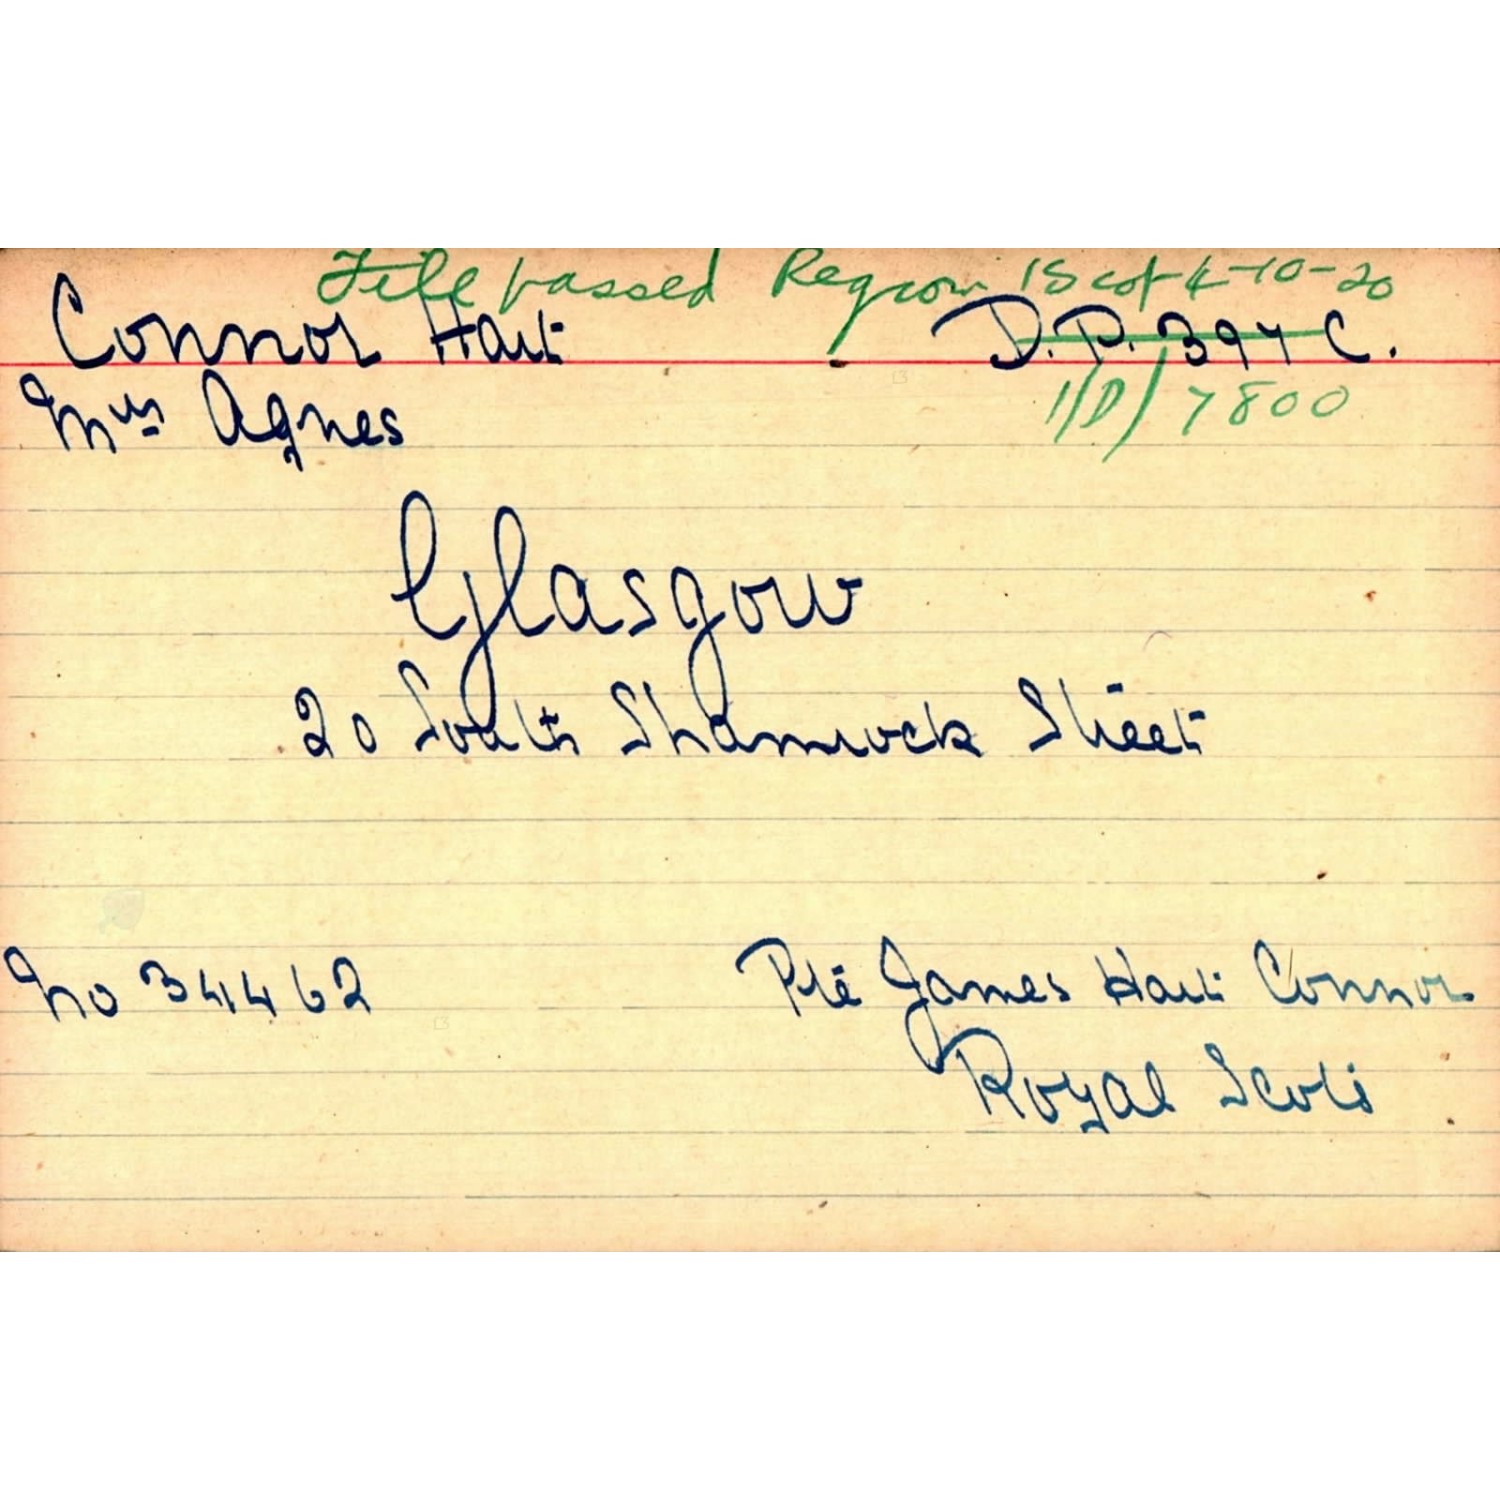 File passed Region 1 Scot 4-10-20
Connor Hart D.P. 394 C.
Mrs Agnes 1/D/7800
Glasgow
20 South Shamrock Street
No 34462 Pte James Hart Connor
Royal Scots